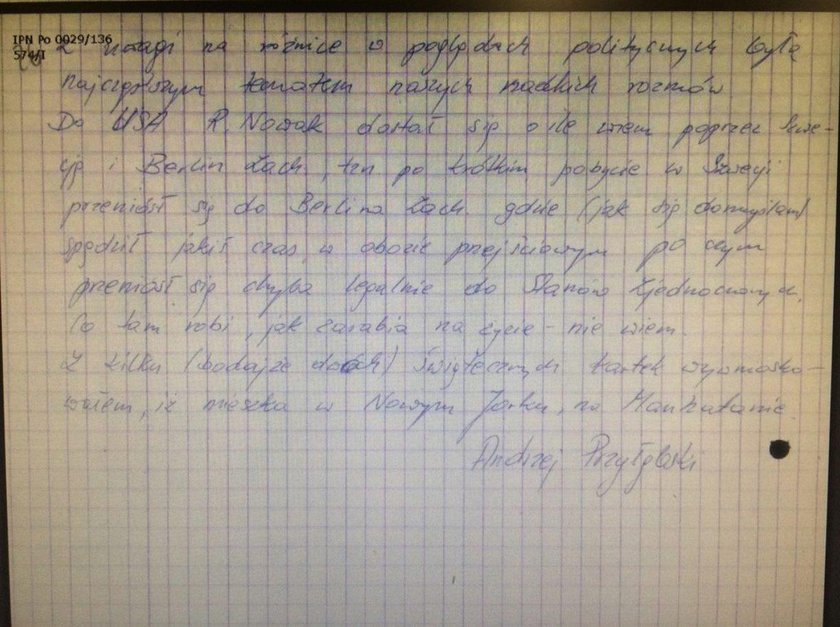 IPN Po 0029/136
574/I
z uwagi na różnice w poglądach politycznych była
najczęstszym tematem naszych rzadkich rozmów
Do USA R. Nowak dostał się o ile wiem poprzez Szwe-
cję i Berlin Zach., tzn po krótkim pobycie w Szwecji
przeniósł się do Berlina Zach. gdzie (jak się domyślam)
spędził jakiś czas w obozie przejściowym po czym
przeniósł się chyba legalnie do Stanów Zjednoczonych.
Co tam robi, jak zarabia na życie - nie wiem.
Z kilku (bodajże dwóch) świątecznych kartek wywniosko-
wałem, iż mieszka w Nowym Jorku, na Manhatanie.
Andrzej Przyłębski